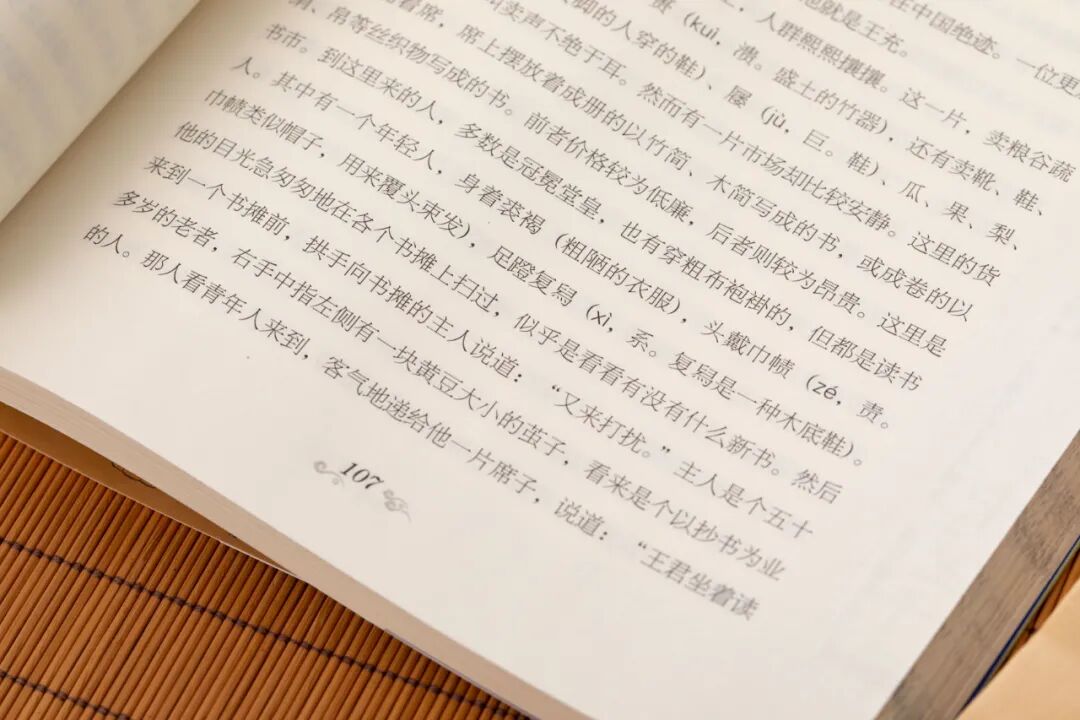 在中国绝迹。一位更
他就是王充。
，人群熙熙攘攘。这一片，卖粮谷蔬
（kuì，溃。盛土的竹器），还有卖靴、鞋、
脚的人穿的鞋）、屦（jù，巨。鞋）、瓜、果、梨、
叫卖声不绝于耳。然而有一片市场却比较安静。这里的货
着席，席上摆放着成册的以竹简、木简写成的书，或成卷的以
绢、帛等丝织物写成的书。前者价格较为低廉，后者则较为昂贵。这里是
书市。到这里来的人，多数是冠冕堂皇，也有穿粗布袍褂的，但都是读书
人。其中有一个年轻人，身着裘褐（粗陋的衣服），头戴巾帻（zé，责。
巾帻类似帽子，用来覆头束发），足蹬复舄（xì，系。复舄是一种木底鞋）。
他的目光急匆匆地在各个书摊上扫过，似乎是看看有没有什么新书。然后
来到一个书摊前，拱手向书摊的主人说道：“又来打扰。”主人是个五十
多岁的老者，右手中指左侧有一块黄豆大小的茧子，看来是个以抄书为业
的人。那人看青年人来到，客气地递给他一片席子，说道：“王君坐着读
107